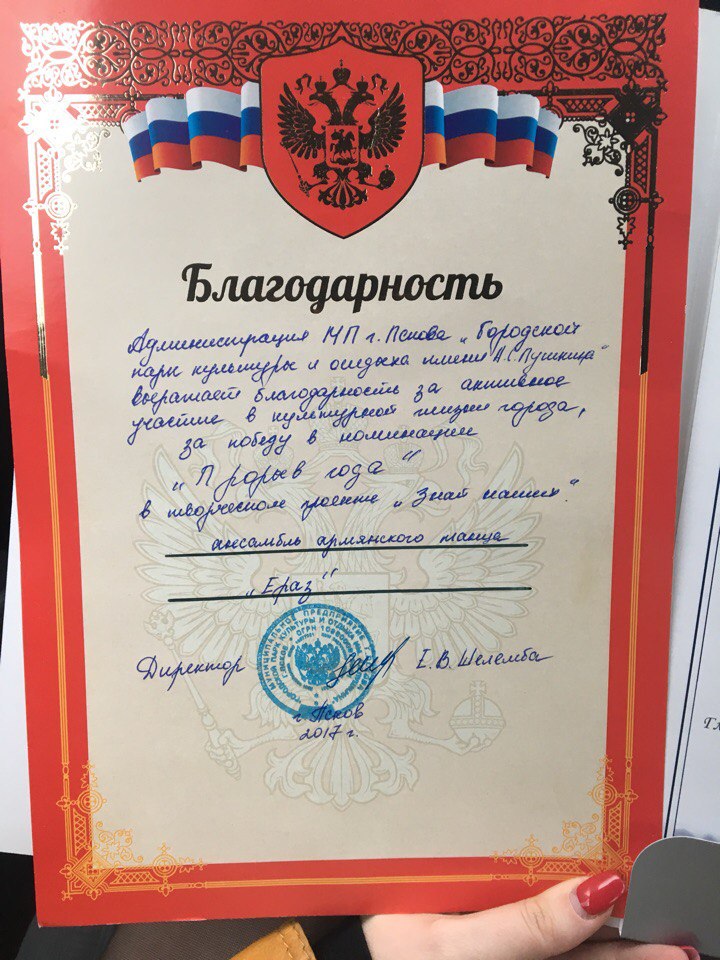 Благодарность
Администрация МП г. Пскова „Городской
парк культуры и отдыха имени А.С. Пушкина"
выражает благодарность за активное
участие в культурной жизни города,
за победу в номинации
„Прорыв года"
в творческом проекте „Знай наших".
ансамбль армянского танца
„Ераз"
МУНИЦИПАЛЬНОЕ ПРЕДПРИЯТИЕ
ПАРК КУЛЬТУРЫ И ОТДЫХА
Директор Е.В. Шелемба
г. Псков
2017 г.